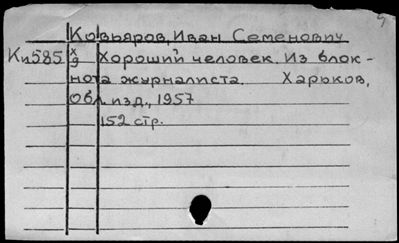 Ковьяров, Иван Семенович
Кп585 х/9 Хороший человек. Из блок-
нота журналиста. Харьков,
Обл. изд., 1957
152 стр.